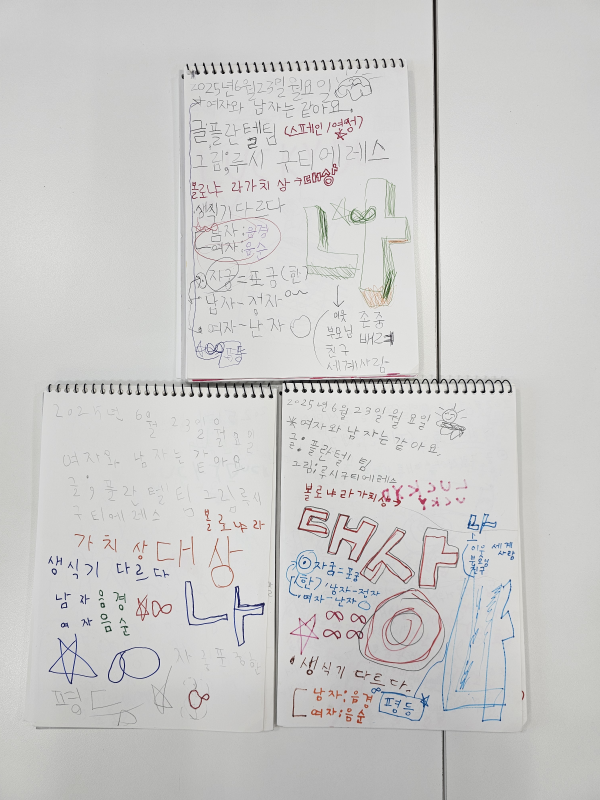 2025년 6월 23일 월요일
*여자와 남자는 같아요.
글,플란텔팀 (스페인/여성?)
그림;루시 구티에레스
볼로냐 라가치 상→대상
생식기 다르다
남자;음경
여자;음순
자궁=포궁(한)
남자-정자
여자-난자
평등
나
이웃 존중
부모님 배려
친구
세계사람
2025년 6월 23일 월요일
여자와 남자는 같아요
글;플란텔 팀 그림;루시
구티에레스 볼로냐 라
가치 상 대상
생식기 다르다
남자 음경
여자 음순
나
자궁 포궁 한
평등
2025년 6월 23일 월요일
*여자와 남자는 같아요.
글;플란텔 팀
그림;루시구티에레스
LUCKY
볼로냐 라가치상→
대상
나
이웃 세계
부모님 사람
친구
자궁=포궁
(한) 남자-정자
여자-난자
생식기 다르다.
남자;음경
여자;음순
평등